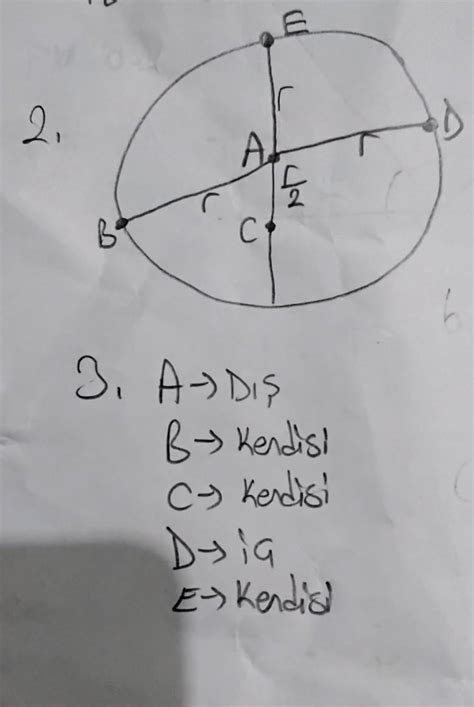 2.
E
r
A
r
D
r
r/2
B
C
3. A→Dış
B→Kendisi
C→Kendisi
D→iG
E→Kendisi